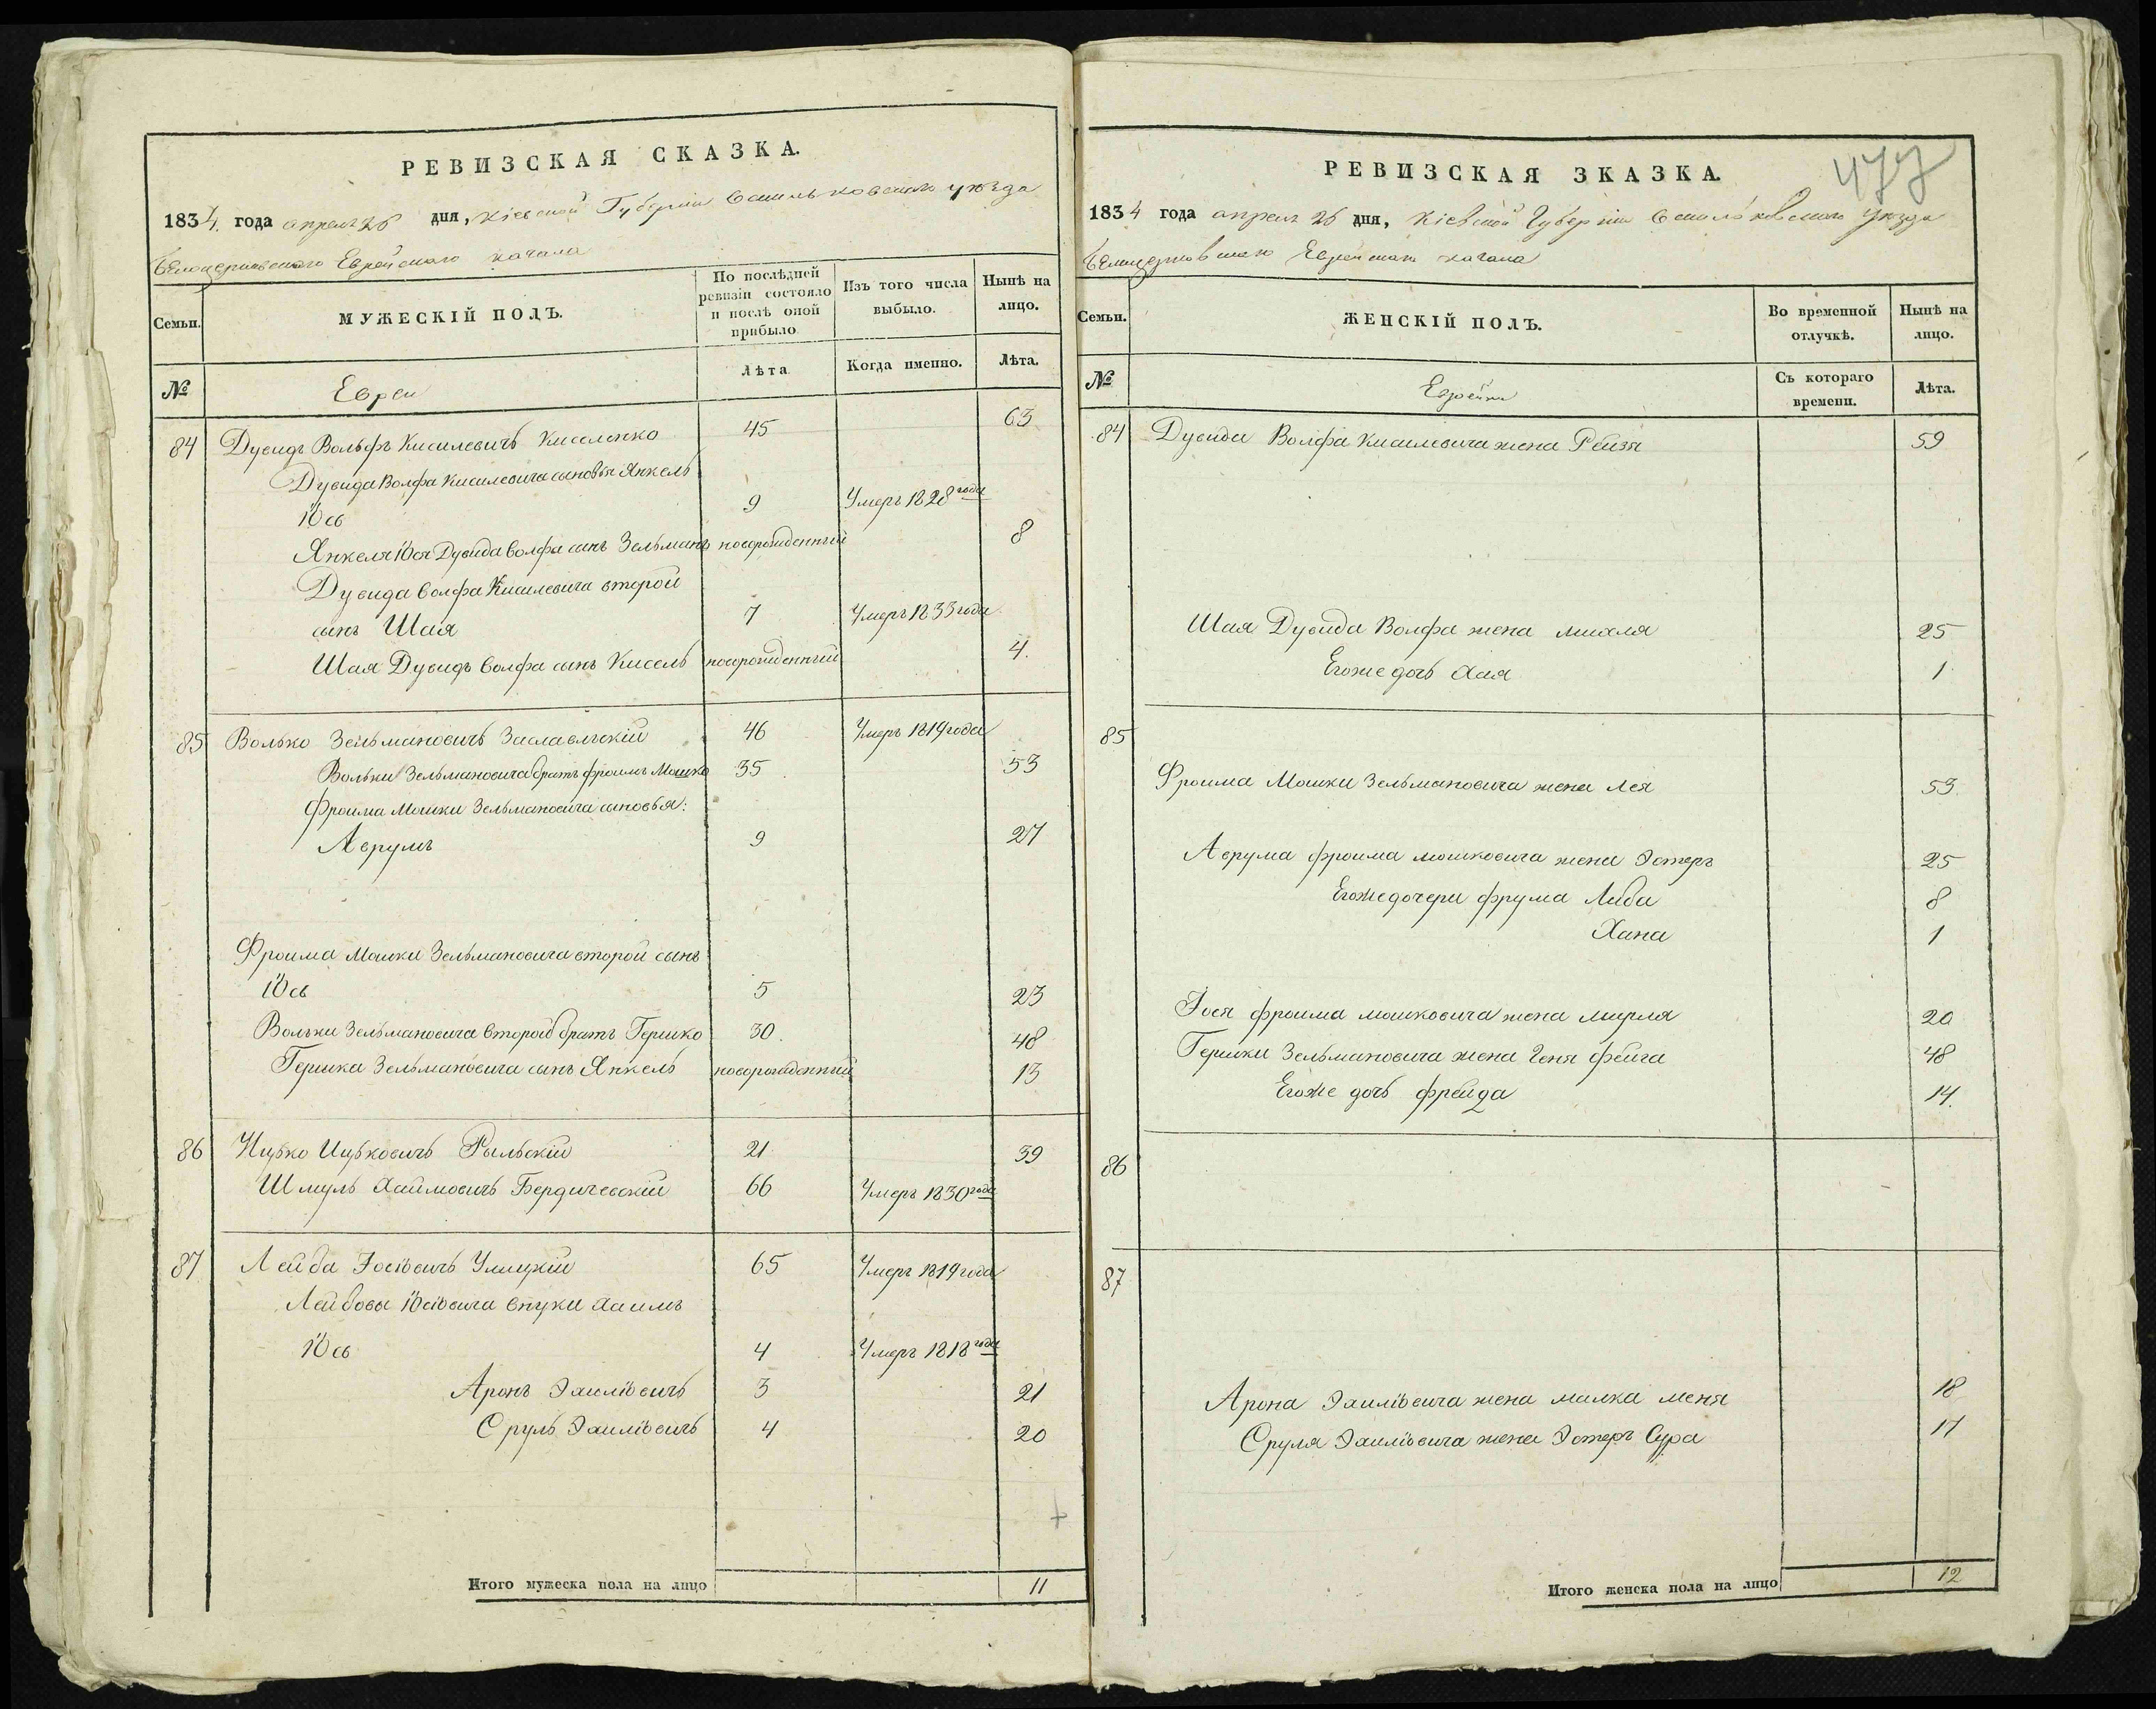 РЕВИЗСКАЯ СКАЗКА.
1834. года апреля 26 дня, Кіевской Губерніи Васильковскаго уѣзда
Бѣлоцерковскаго Еврейскаго кагала
Семьи.
МУЖЕСКІЙ ПОЛЪ.
По послѣдней ревизіи состояло и послѣ оной прибыло
Изъ того числа выбыло.
Нынѣ на лицо.
№
Евреи
Лѣта
Когда именно.
Лѣта.
84 Дувидъ Вольфъ Кисилевичъ Киселенко 45 63
Дувида Волфа Кисилевича сыновья Янкель
Іось 9 Умеръ 1828 года
Янкеля Іося Дувида Волфа сынъ Зельманъ новорожденный 8
Дувида Волфа Кисилевича второй
сынъ Шая 7 Умеръ 1833 года
Шая Дувидъ Волфа сынъ Кисель новорожденный 4.
85 Волько Зельмановичъ Заславльскій 46 Умеръ 1819 года
Вольки Зельмановича братъ Фроимъ Мошко 35 53
Фроима Мошки Зельмановича сыновья:
Аврумъ 9 27
Фроима Мошки Зельмановича второй сынъ
Іось 5 23
Вольки Зельмановича второй братъ Гершко 30. 48
Гершка Зельмановича сынъ Янкель новорожденный 13
86 Ицько Ицьковичъ Рыльскій 21 39
Шмуль Хаимовичъ Бердичевскій 66 Умеръ 1830 года
87 Лейба Іосіовичъ 65 Умеръ 1819 года
Лейбовы Іосіовича внуки Хаимъ
Іось 4 Умеръ 1818 года
Аронъ 3 21
Сруль 4 20
Итого мужеска пола на лицо 11
477
РЕВИЗСКАЯ ЗКАЗКА.
1834 года апреля 26 дня, Кіевской Губерніи Васильковскаго Уѣзда
Бѣлоцерковскаго Еврейскаго кагала
Семьи.
ЖЕНСКІЙ ПОЛЪ.
Во временной отлучкѣ.
Нынѣ на лицо.
№
Еврейки
Съ котораго времени.
Лѣта.
84 Дувида Волфа Кисилевича жена Рейзя 59
Шая Дувида Волфа жена Михля 25
Егоже дочь Хая 1
85
Фроима Мошки Зельмановича жена Лея 53
Аврума Фроима Мошковича жена Эстеръ 25
Егоже дочери Фрума Либа 8
Хана 1
Іося Фроима Мошковича жена Мирля 20
Гершки Зельмановича жена Геня Фейга 48
Егоже дочь Фрейда 14.
86
87
Арона жена Малка Меня 18
Сруля жена Эстеръ Сура 17
Итого женска пола на лицо 12